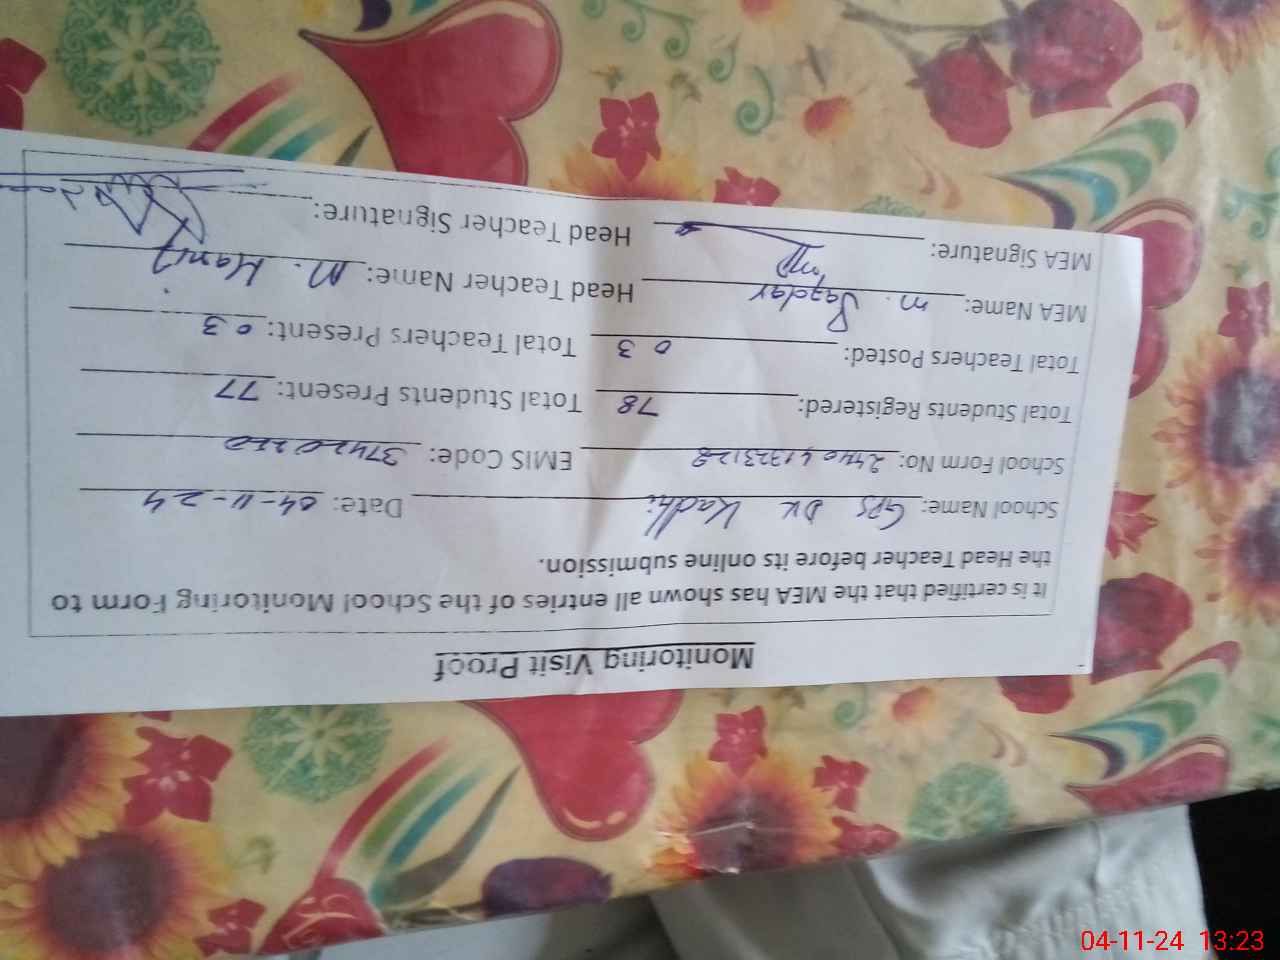 Monitoring Visit Proof
It is certified that the MEA has shown all entries of the School Monitoring Form to
the Head Teacher before its online submission.
School Name: GPS DK Kadhi Date: 04-11-24
School Form No: EMIS Code:
Total Students Registered: 78 Total Students Present: 77
Total Teachers Posted: 03 Total Teachers Present: 03
MEA Name: M. Safdar Head Teacher Name: M. Hanif
MEA Signature: Head Teacher Signature:
04-11-24 13:23